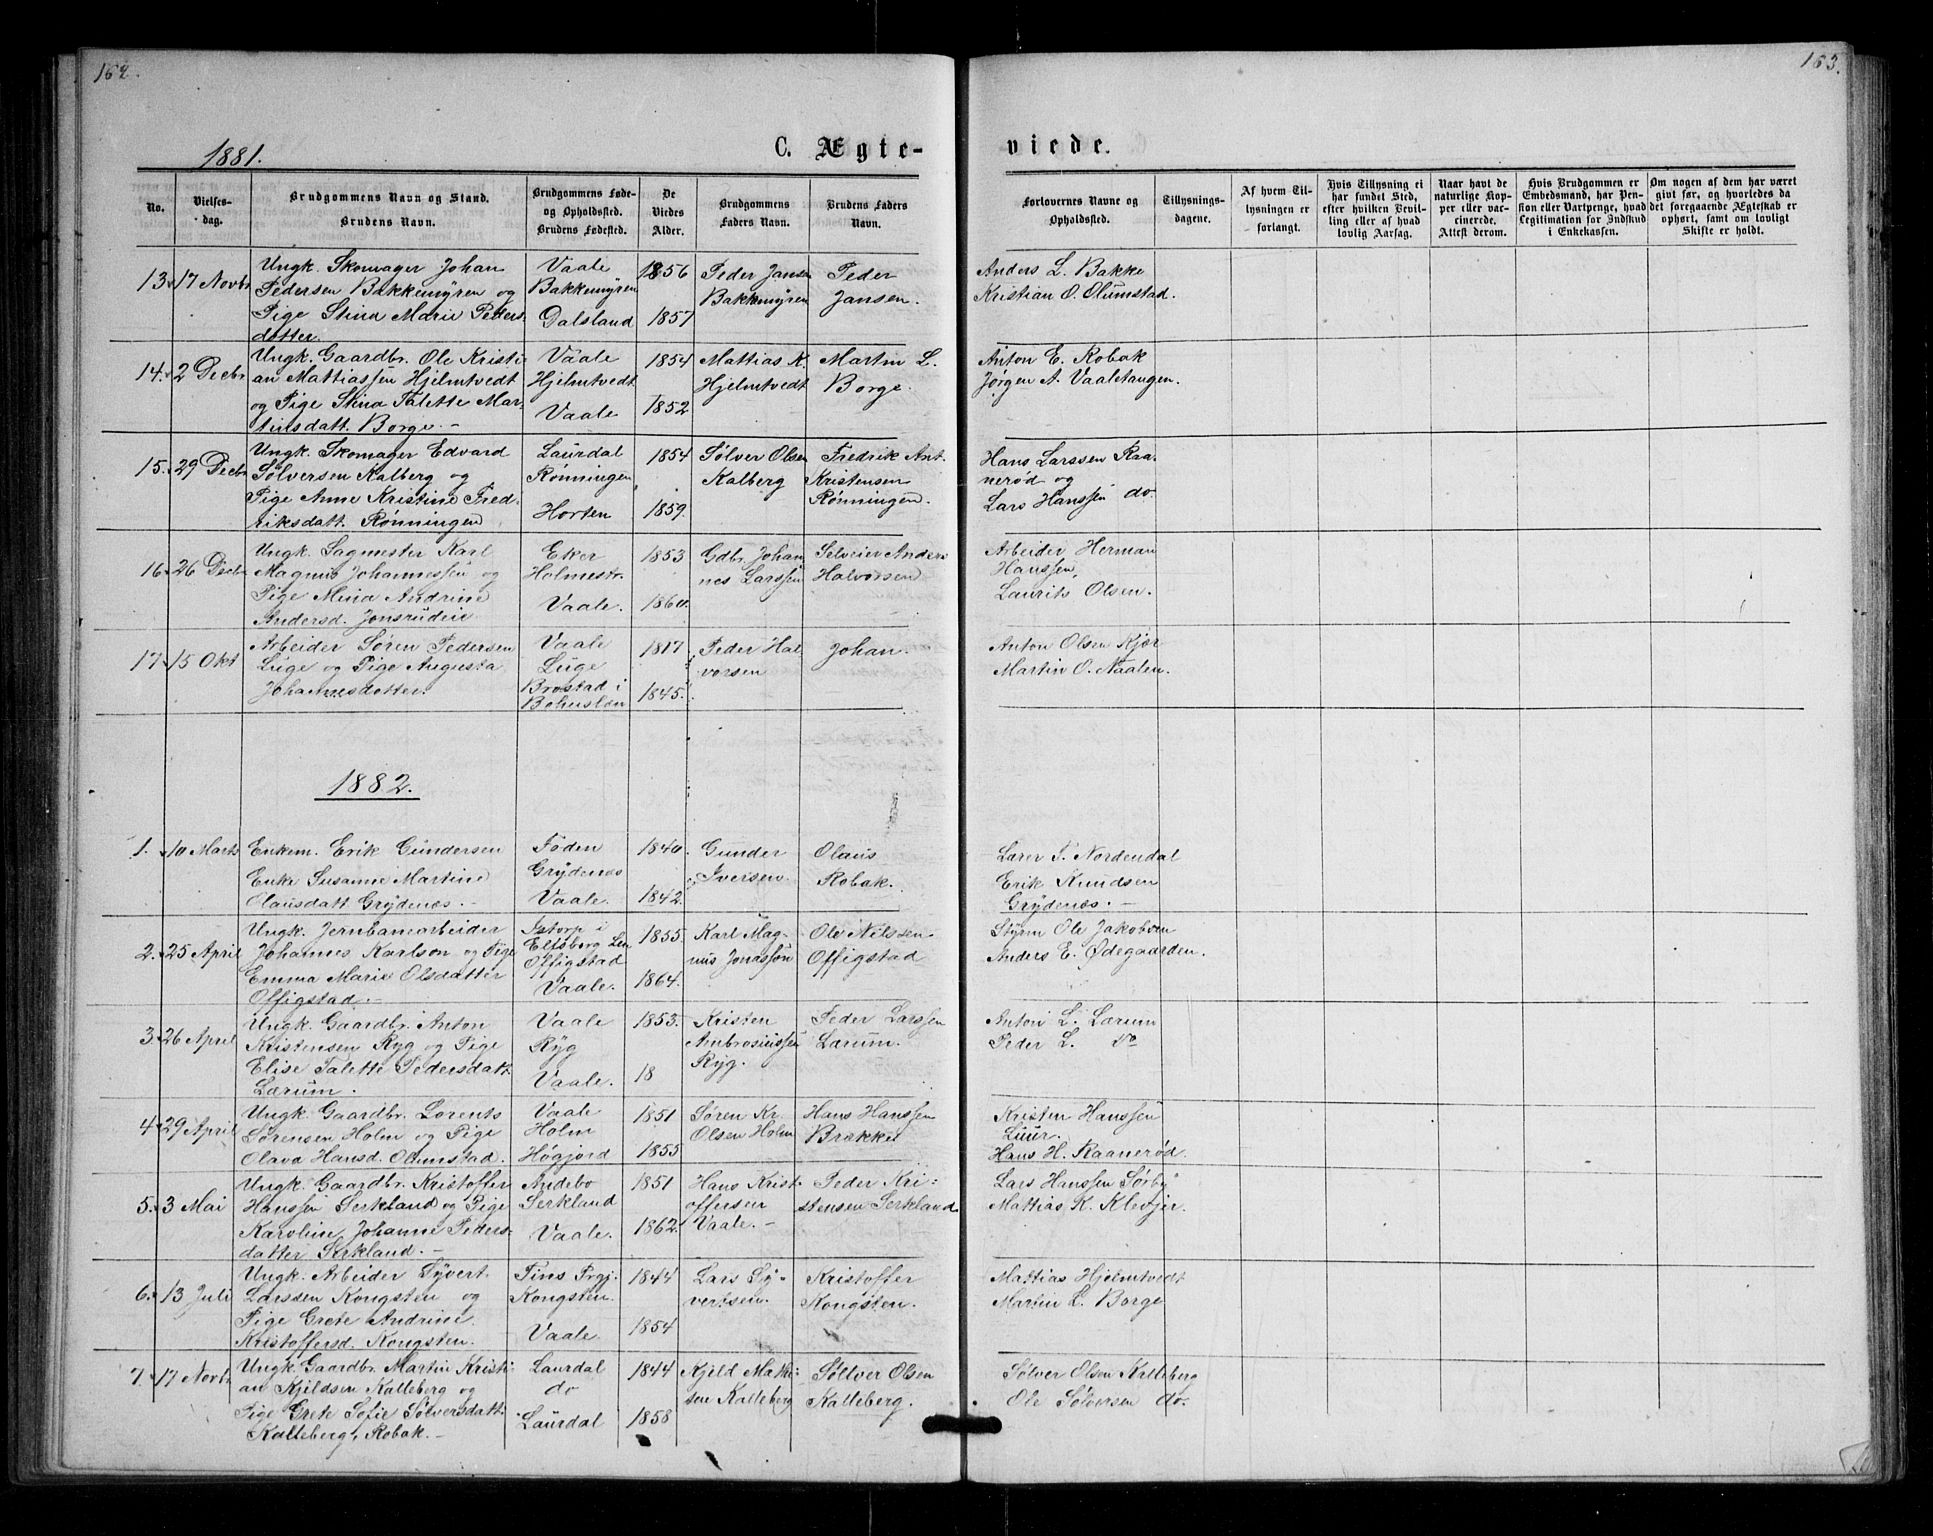 162.
163.
1881.
C. Ægte-
viede.
No.
Vielses-
dag.
Brudgommens Navn og Stand.
Brudens Navn.
Brudgommens Føde-
og Opholdssted.
Brudens Fødested.
De
Viedes
Alder.
Brudgommens
Faders Navn.
Brudens Faders
Navn.
Forlovernes Navne og
Opholdssted.
Tillysnings-
dagene.
Af hvem Til-
lysningen er
forlangt.
Hvis Tillysning ei
har fundet Sted,
efter hvilken Bevil-
ling eller af hvad
lovlig Aarsag.
Naar havt de
naturlige Kop-
per eller vac-
cinerede.
Attest derom.
Hvis Brudgommen er
Embedsmand, har Pen-
sion eller Vartpenge, hvad
Legitimation for Indskud
i Enkekassen.
Om nogen af dem har været
givt før, og hvorledes da
det foregaaende Ægteskab er
ophørt, samt om lovligt
Skifte er holdt.
13. 17 Novbr
Ungk. Skomager Johan
Pedersen Bakkemyren og
Pige Stina Marie Peders-
datter.
Vaale
Bakkemyren
Dalsland
1856
1857
Peder Jansen
Bakkemyren
Peder
Jansen.
Anders L. Bakke
Kristian O. Olumstad.
14. 2 Decbr
Ungk. Gaardbr. Ole Kristi-
an Mattiassen Hjelmtvedt
og Pige Stina Talette Mar-
tinsdatt. Borge. -
Vaale
Hjelmtvedt
Vaale
1854
1852
Mattias K.
Hjelmtvedt
Martin L.
Borge.
Anton E. Robak
Jørgen A. Vaaletangen.
15. 29 Decbr
Ungk. Skomager Edvard
Sølversen Kalberg og
Pige Anne Kristine Fred-
riksdatt. Rønningen
Laurdal
Rønningen
Horten
1854
1859.
Sølver Olsen
Kalberg
Fredrik Ant.
Kristensen
Rønningen.
Hans Larssen Raa-
nerød og
Lars Hanssen do.
16. 26 Decbr
Ungk. Sagmester Karl
Magnus Johannessen og
Pige Mina Andrine
Andersd. Jonsrudeie
Eker
Holmestr.
Vaale.
1853
1860.
Gdbr. Johan-
nes Larssen
Selveier Anders
Halvorsen
Arbeider Herman
Hanssen
Laurits Olsen.
17. 15 Okt
Arbeider Søren Pedersen
Luge og Pige Augusta
Johannesdatter.
Vaale
Luge
Brostad i
Bohuslæn
1817
1845.
Peder Hal-
vorsen
Johan.
Anton Olsen Kjær
Martin O. Naalen.
1882.
1. 10 Marts
Enkem. Erik Gundersen
Enke Susanne Martine
Olausdatt Grydenæs. -
Foden
Grydenæs
Vaale.
1840.
1842.
Gunder
Iversen.
Olaus
Robak.
Lærer T. Nordendal
Erik Knudsen
Grydenæs. -
2. 25 April
Ungk. Jernbanearbeider
Johannes Karlson og Pige
Emma Marie Olsdatter
Offigstad. -
Istorp i
Elfsberg Len
Offigstad
Vaale.
1855.
1864.
Karl Mag-
nus Jonasson
Ole Nilssen
Offigstad
Styrm Ole Jakobsen
Anders E. Ødegaarden.
3. 26 April
Ungk. Gaardbr. Anton
Kristensen Ryg og Pige
Elise Talette Pedersdatt.
Lærum.
Vaale
Ryg
Vaale.
1853.
18
Kristen
Ambrosiussen
Ryg.
Peder Larssen
Lærum.
Anton L. Lærum
Peder L. do
4. 29 April
Ungk. Gaardbr. Lorents
Sørensen Holm og Pige
Olava Hansd. Olumstad.
Vaale
Holm
Høgjord
1851
1855
Søren Kr.
Olsen Holm
Hans Hanssen
Brække
Kristen Hanssen
Luur.
Hans H. Raanerød
5. 3 Mai
Ungk. Gaardbr. Kristoffer
Hanssen Serkland og Pige
Karoline Johanne Peders-
datter Serkland. -
Andebo
Serkland
Vaale.
1851
1862.
Hans Krist-
offersen
Vaale. -
Peder Kri-
stensen Serkland
Lars Hanssen Sørby
Mattias K. Klevjer.
6. 13 Juli
Ungk. Arbeider Syvert
Larssen Kongsten og
Pige Grete Andrine
Kristoffersd. Kongsten.
Tins Prgj.
Kongsten.
Vaale
1844
1854
Lars Sy-
vertsen.
Kristoffer
Kongsten.
Mattias Hjelmtvedt
Martin L. Borge
7. 17 Novbr
Ungk. Gaardbr. Martin Kristi-
an Kjeldsen Kalleberg og
Pige Grete Sofie Sølversdatt.
Kalleberg, Robak. -
Laurdal
do
Laurdal
1844
1858
Kjeld Mathi-
sen Kalleberg
Søltver Olsen
Kalleberg.
Sølver Olsen Kalleberg
Ole Sølversen do.